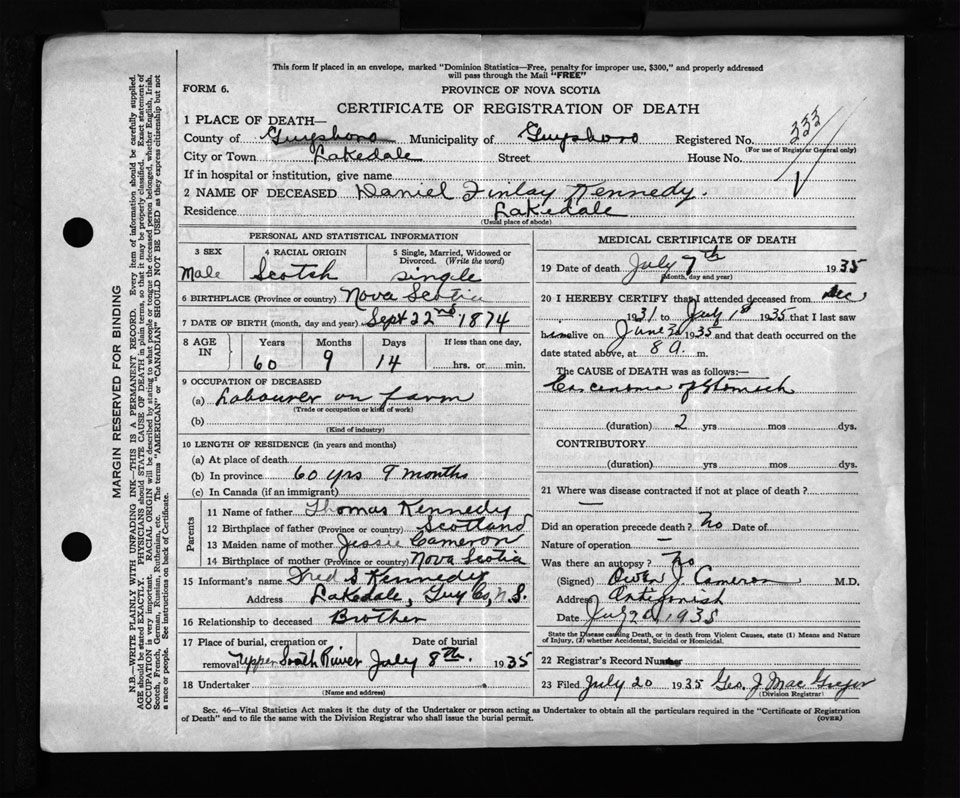 This form if placed in an envelope, marked "Dominion Statistics—Free, penalty for improper use, $300," and properly addressed
will pass through the Mail "FREE"
FORM 6.
PROVINCE OF NOVA SCOTIA
CERTIFICATE OF REGISTRATION OF DEATH
1 PLACE OF DEATH—
County of Guysboro Municipality of Guysboro Registered No. 333
(For use of Registrar General only)
City or Town Lakedale Street House No.
If in hospital or institution, give name
2 NAME OF DECEASED Daniel Finlay Kennedy.
Residence Lakedale
(Usual place of abode)
PERSONAL AND STATISTICAL INFORMATION
3 SEX 4 RACIAL ORIGIN 5 Single, Married, Widowed or
Divorced. (Write the word)
Male Scotch single
6 BIRTHPLACE (Province or country) Nova Scotia
7 DATE OF BIRTH (month, day and year) Sept 22nd 1874
8 AGE IN Years Months Days If less than one day,
60 9 14 hrs. or min.
9 OCCUPATION OF DECEASED
(a) Labourer on farm
(Trade or occupation or kind of work)
(b)
(Kind of industry)
10 LENGTH OF RESIDENCE (in years and months)
(a) At place of death
(b) In province 60 yrs 9 months
(c) In Canada (if an immigrant)
Parents
11 Name of father Thomas Kennedy
12 Birthplace of father (Province or country) Scotland
13 Maiden name of mother Jessie Cameron
14 Birthplace of mother (Province or country) Nova Scotia
15 Informant's name Fred S Kennedy
Address Lakedale, Guy Co, N.S.
16 Relationship to deceased Brother
17 Place of burial, cremation or Date of burial
removal Upper South River July 8th. 1935
18 Undertaker
(Name and address)
MEDICAL CERTIFICATE OF DEATH
19 Date of death July 7th 1935
(Month, day and year)
20 I HEREBY CERTIFY that I attended deceased from Dec
1931 to July 1st 1935 that I last saw
him alive on June 30 1935 and that death occurred on the
date stated above, at 8 a. m.
The CAUSE of DEATH was as follows:—
Carcinoma of Stomach
(duration) 2 yrs mos dys.
CONTRIBUTORY
(duration) yrs mos dys.
21 Where was disease contracted if not at place of death?
—
Did an operation precede death? No Date of
Nature of operation —
Was there an autopsy? No
(Signed) Owen J. Cameron M.D.
Address Antigonish
Date July 20, 1935
State the Disease causing Death, or in death from Violent Causes, state (1) Means and Nature
of Injury, (2) whether Accidental, Suicidal or Homicidal.
22 Registrar's Record Number
23 Filed July 20 1935 Geo. J. MacGregor
(Division Registrar)
Sec. 46—Vital Statistics Act makes it the duty of the Undertaker or person acting as Undertaker to obtain all the particulars required in the "Certificate of Registration
of Death" and to file the same with the Division Registrar who shall issue the burial permit.
(OVER)
MARGIN RESERVED FOR BINDING
N.B.—WRITE PLAINLY WITH UNFADING INK—THIS IS A PERMANENT RECORD. Every item of information should be carefully supplied.
AGE should be stated EXACTLY. PHYSICIANS should STATE CAUSE OF DEATH in plain terms, so that it may be properly classified. Exact statement of
OCCUPATION is very important. RACIAL ORIGIN will be described by stating to what people or tongue the deceased person belonged, whether English, Irish,
Scotch, French, German, Russian, Ruthenian, etc. The terms "AMERICAN" or "CANADIAN" SHOULD NOT BE USED as they express citizenship but not
a race or people. See instructions on back of Certificate.